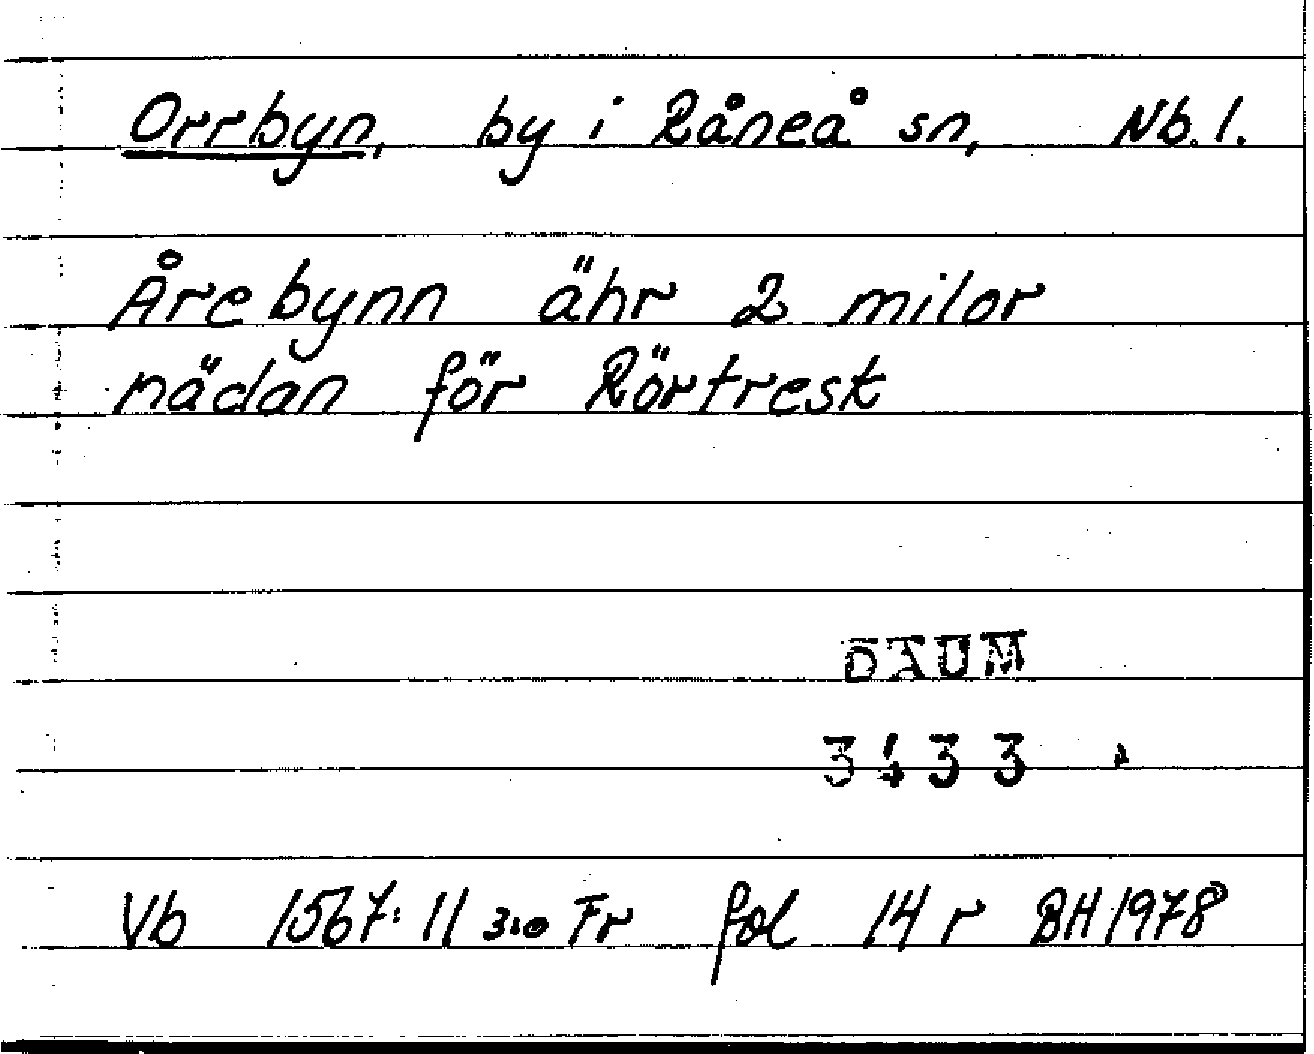 Orrbyn, by i Råneå sn, Nb. l.
Årebynn ähr 2 milor
nädan för Rörtresk
DAUM
3433
Vb 1567:11 3:0 Fr fol 14 r BH 1978